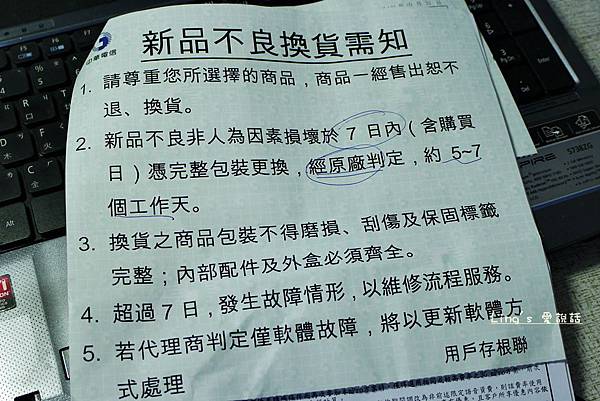 中華電信
新品不良換貨需知
1. 請尊重您所選擇的商品，商品一經售出恕不
退、換貨。
2. 新品不良非人為因素損壞於 7 日內（含購買
日）憑完整包裝更換，經原廠判定，約 5~7
個工作天。
3. 換貨之商品包裝不得磨損、刮傷及保固標籤
完整；內部配件及外盒必須齊全。
4. 超過 7 日，發生故障情形，以維修流程服務。
5. 若代理商判定僅軟體故障，將以更新軟體方
式處理
用戶存根聯
PIRE 5738ZG
Ling's 愛說話